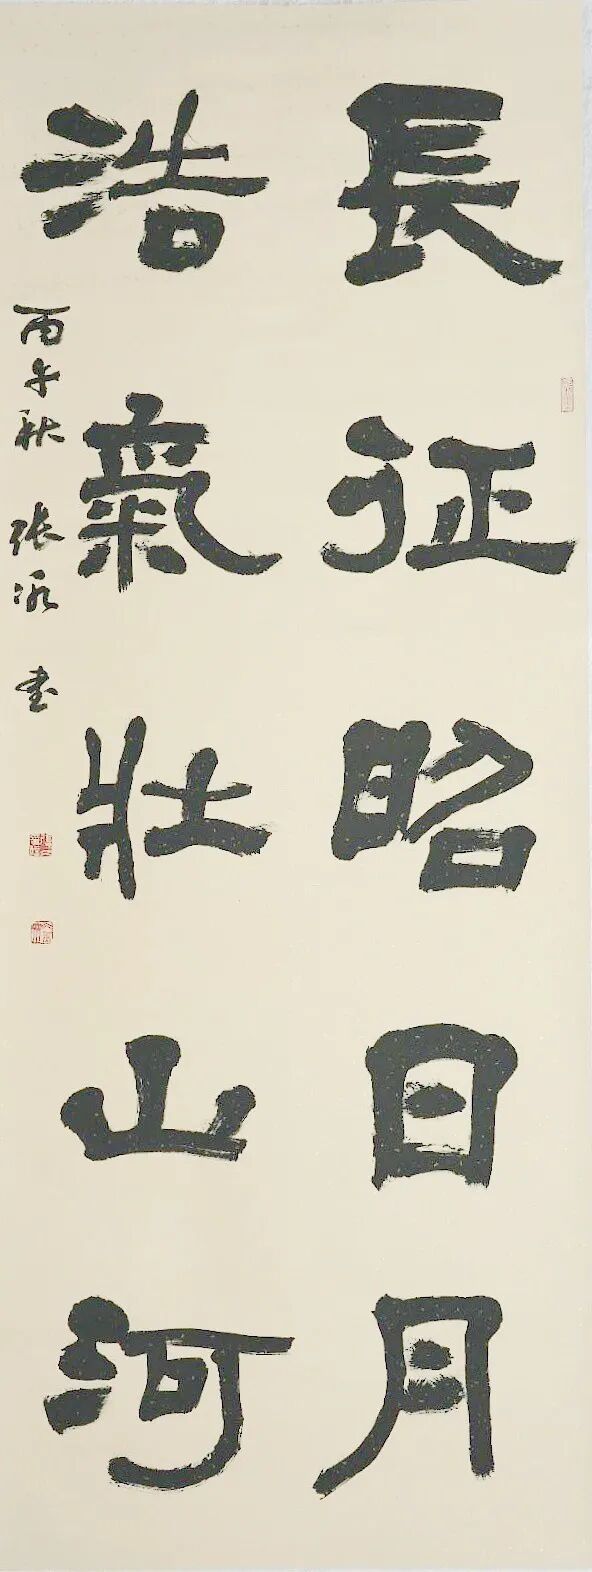 長征昭日月
浩氣壯山河
丙午秋 張泳 書